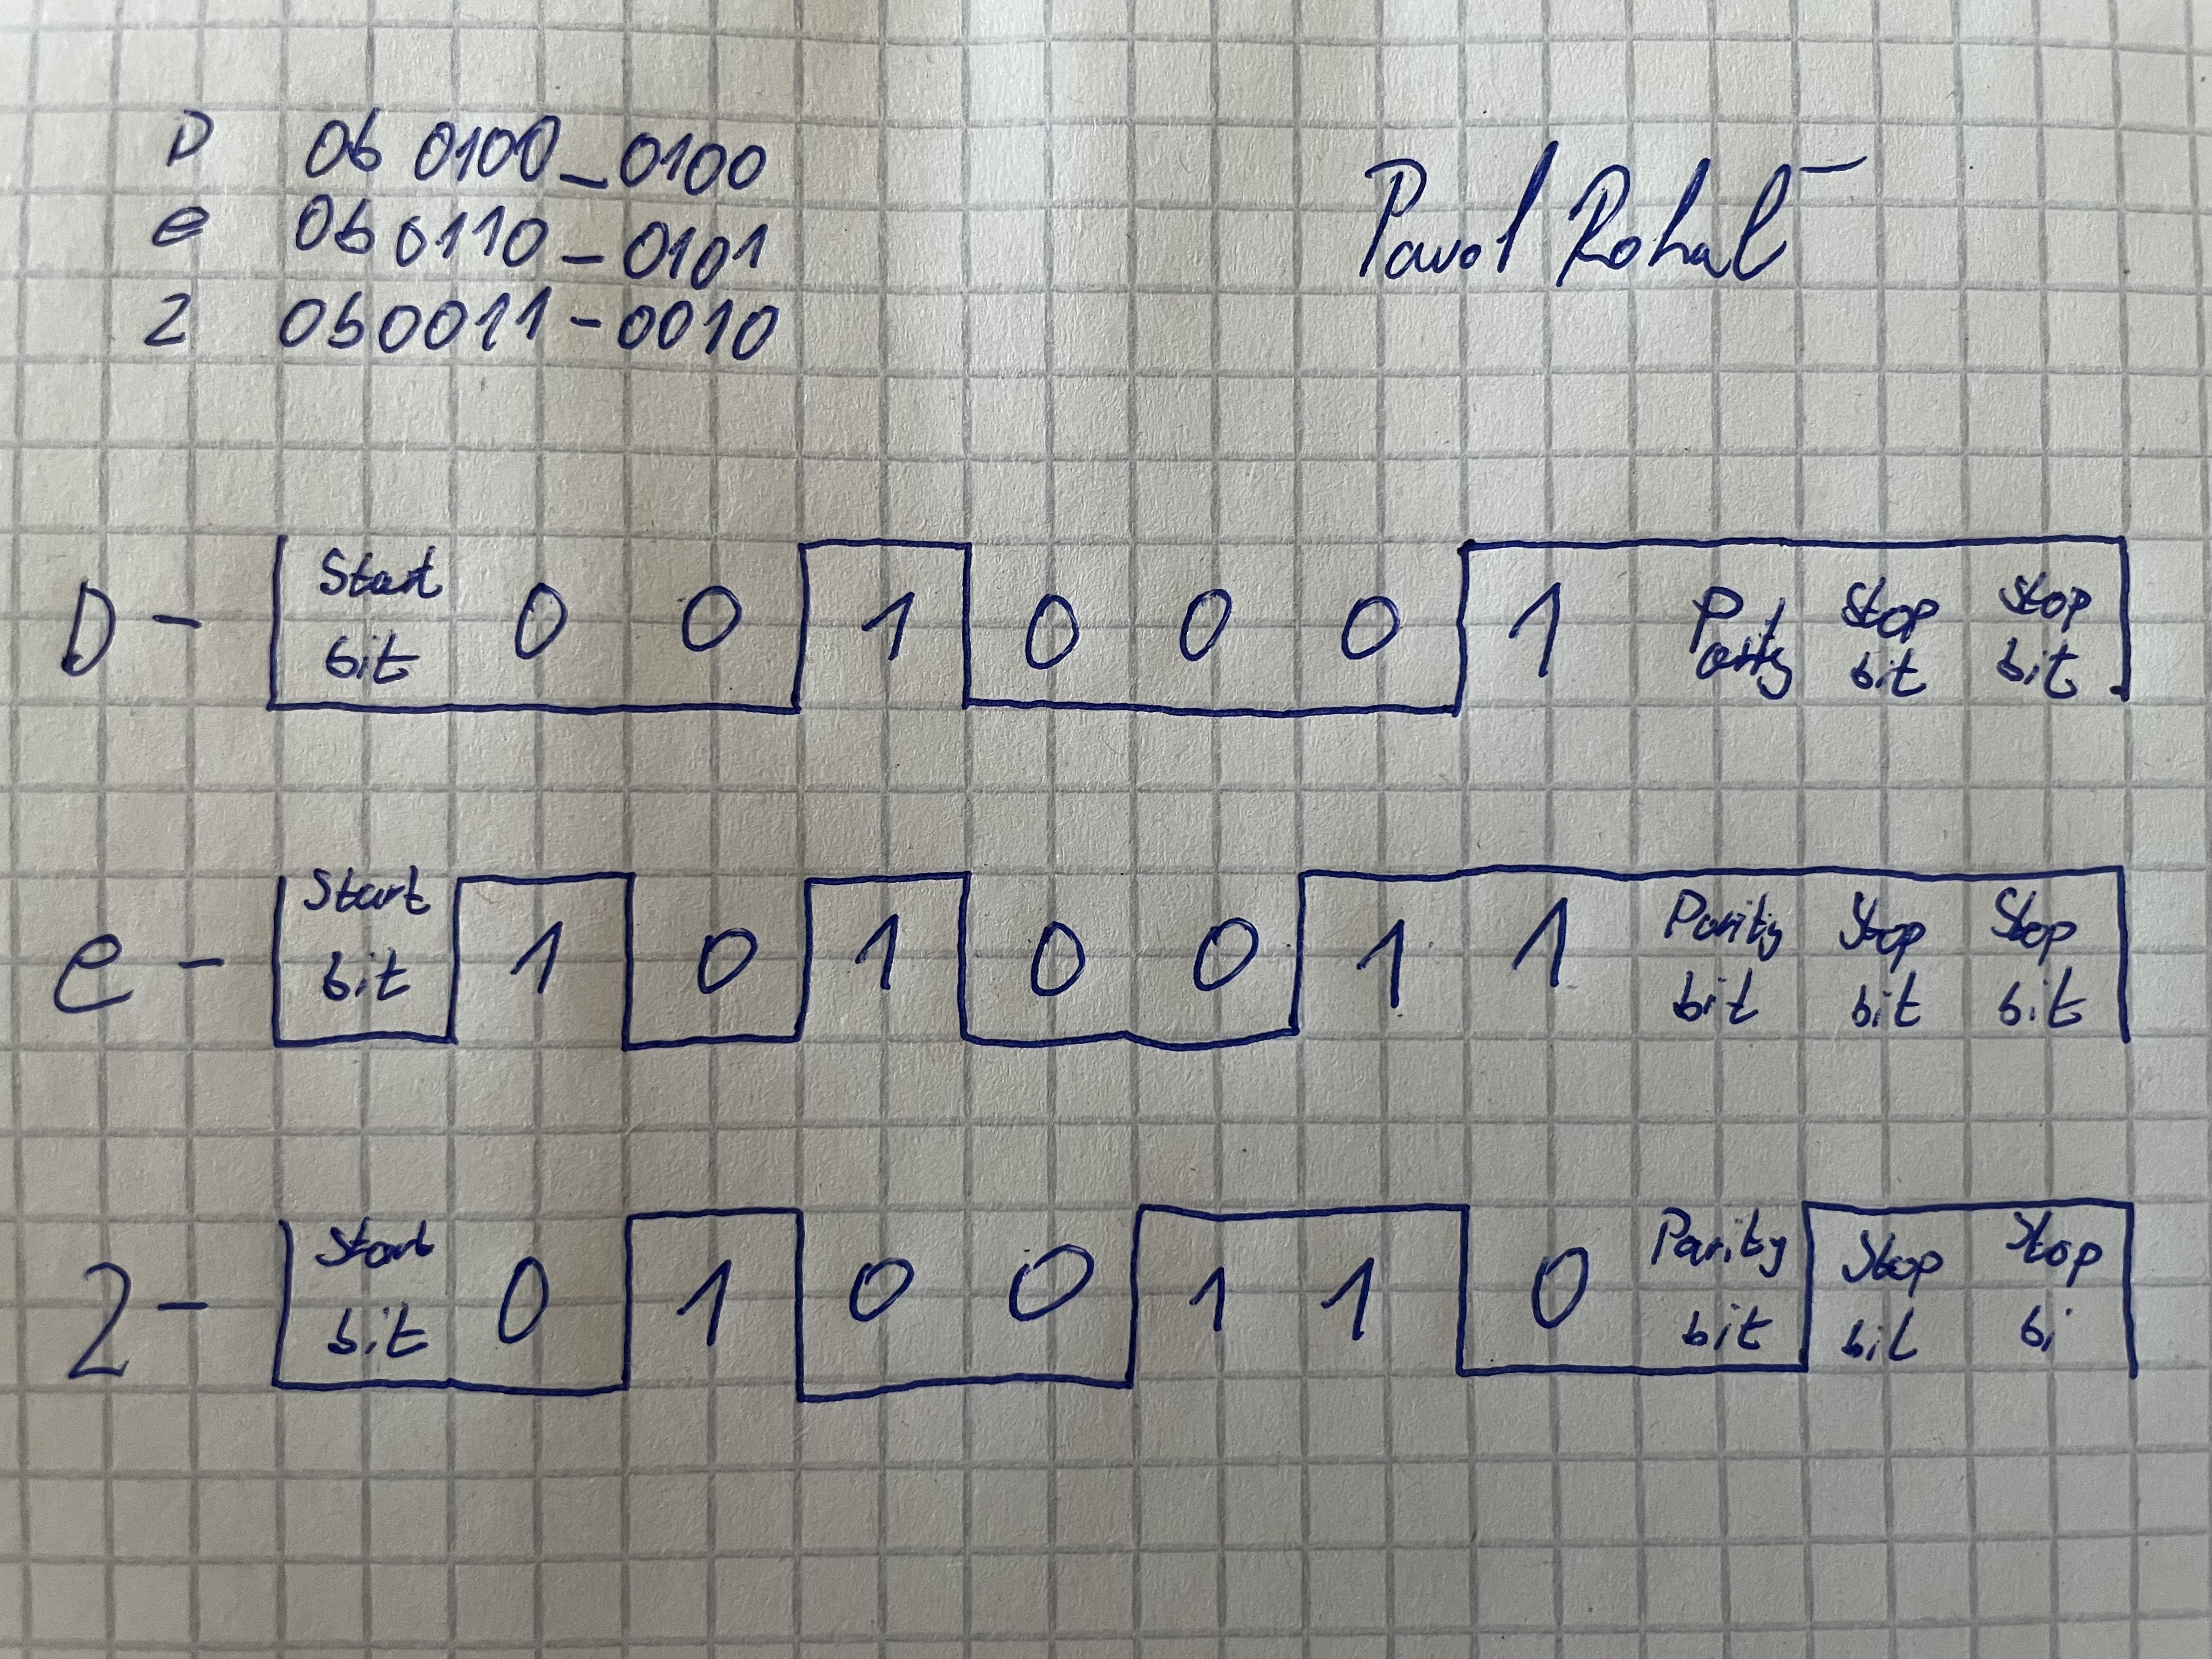 D 0b 0100_0100
e 0b 0110_0101
2 0b0011-0010
D - Start bit 0 0 1 0 0 0 1 Parity Stop bit Stop bit
e - Start bit 1 0 1 0 0 1 1 Parity bit Stop bit Stop bit
2 - Start bit 0 1 0 0 1 1 0 Parity bit Stop bit Stop bi